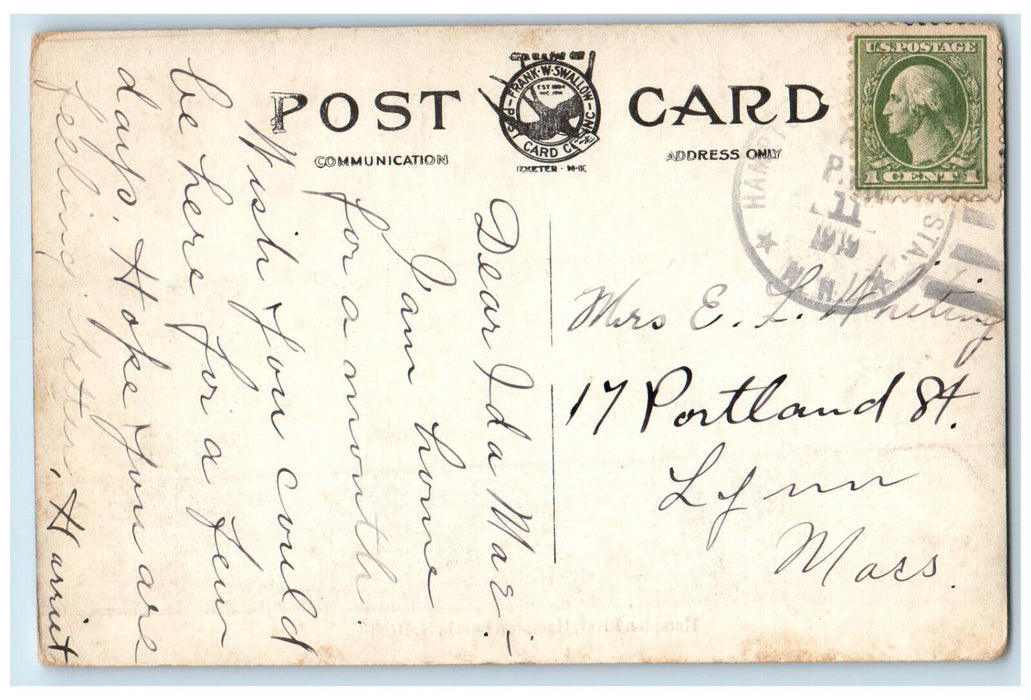 POST CARD
FRANK·W·SWALLOW
EST 1884
INC 1916
POST CARD CO. INC
EXETER · N·H·
COMMUNICATION
ADDRESS ONLY
U.S. POSTAGE
1 CENT 1
HAMP STA.
P
11
1919
N.H.
Dear Ida Mae –
I am home
for a month.
Wish you could
be here for a few
days. Hope you are
feeling better.
Harriet
Mrs E. L. Whiting
17 Portland St.
Lynn
Mass.